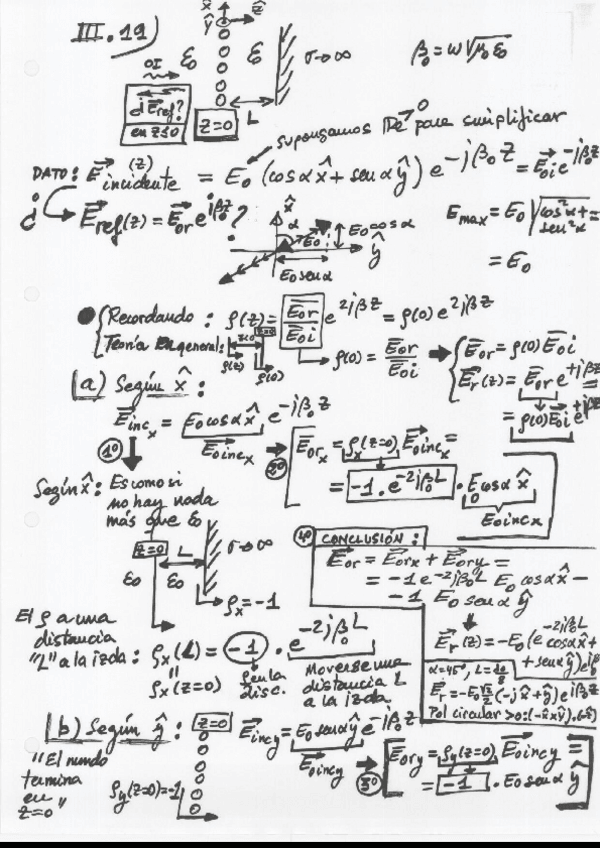 III.19)
x̂
ŷ
ẑ
OI
ε₀
ε₀
σ→∞
β₀ = ω√μ₀ε₀
¿E⃗ref?
en z≤0
z=0
L
supongamos para simplificar
DATO: E⃗incidente(z) = E₀ (cosα x̂ + senα ŷ) e^{-jβ₀z} = E⃗oi e^{-jβ₀z}
¿ E⃗ref(z) = E⃗or e^{jβ₀z} ?
x̂
α
E₀
E₀cosα
ŷ
E₀senα
Emax = E₀ √cos²α + sen²α =
= E₀
Recordando: ρ(z) = E⃗or/E⃗oi e^{2jβz} = ρ(0) e^{2jβz}
Teoría en general:
z=0
ρ(z)
ρ(0)
ρ(0) = E⃗or/E⃗oi
E⃗or = ρ(0) E⃗oi
E⃗r(z) = E⃗or e^{+jβz} =
= ρ(0) E⃗oi e^{+jβz}
(a) Según x̂:
E⃗incx = E₀cosα x̂ e^{-jβ₀z}
E⃗oincx
1º
2º
E⃗orx = ρx(z=0) E⃗oincx =
= -1·e^{-2jβ₀L} · E₀cosα x̂
E⃗oincx
Según x̂: Es como si
no hay nada
más que ε₀
z=0
L
σ→∞
ε₀
ε₀
ρx = -1
El ρ a una
distancia
"L" a la izda: ρx(L) = -1 · e^{-2jβ₀L}
ρx(z=0)
en la
disc.
Moverse una
distancia L
a la izda
4º CONCLUSIÓN:
E⃗or = E⃗orx + E⃗ory =
= -1 e^{-2jβ₀L} E₀ cosα x̂ -
- 1 E₀ senα ŷ
E⃗r(z) = -E₀ (e^{-2jβ₀L} cosα x̂ +
+ senα ŷ) e^{jβ₀z}
α=45°,
E⃗r = -E₀ √2/2 (-j x̂ + ŷ) e^{jβ₀z}
Pol circular >0:
(b) Según ŷ:
z=0
E⃗incy = E₀senα ŷ e^{-jβ₀z}
E⃗oincy
"El mundo
termina
en
z=0"
ρy(z=0) = -1
3º
E⃗ory = ρy(z=0) E⃗oincy =
= -1 · E₀ senα ŷ